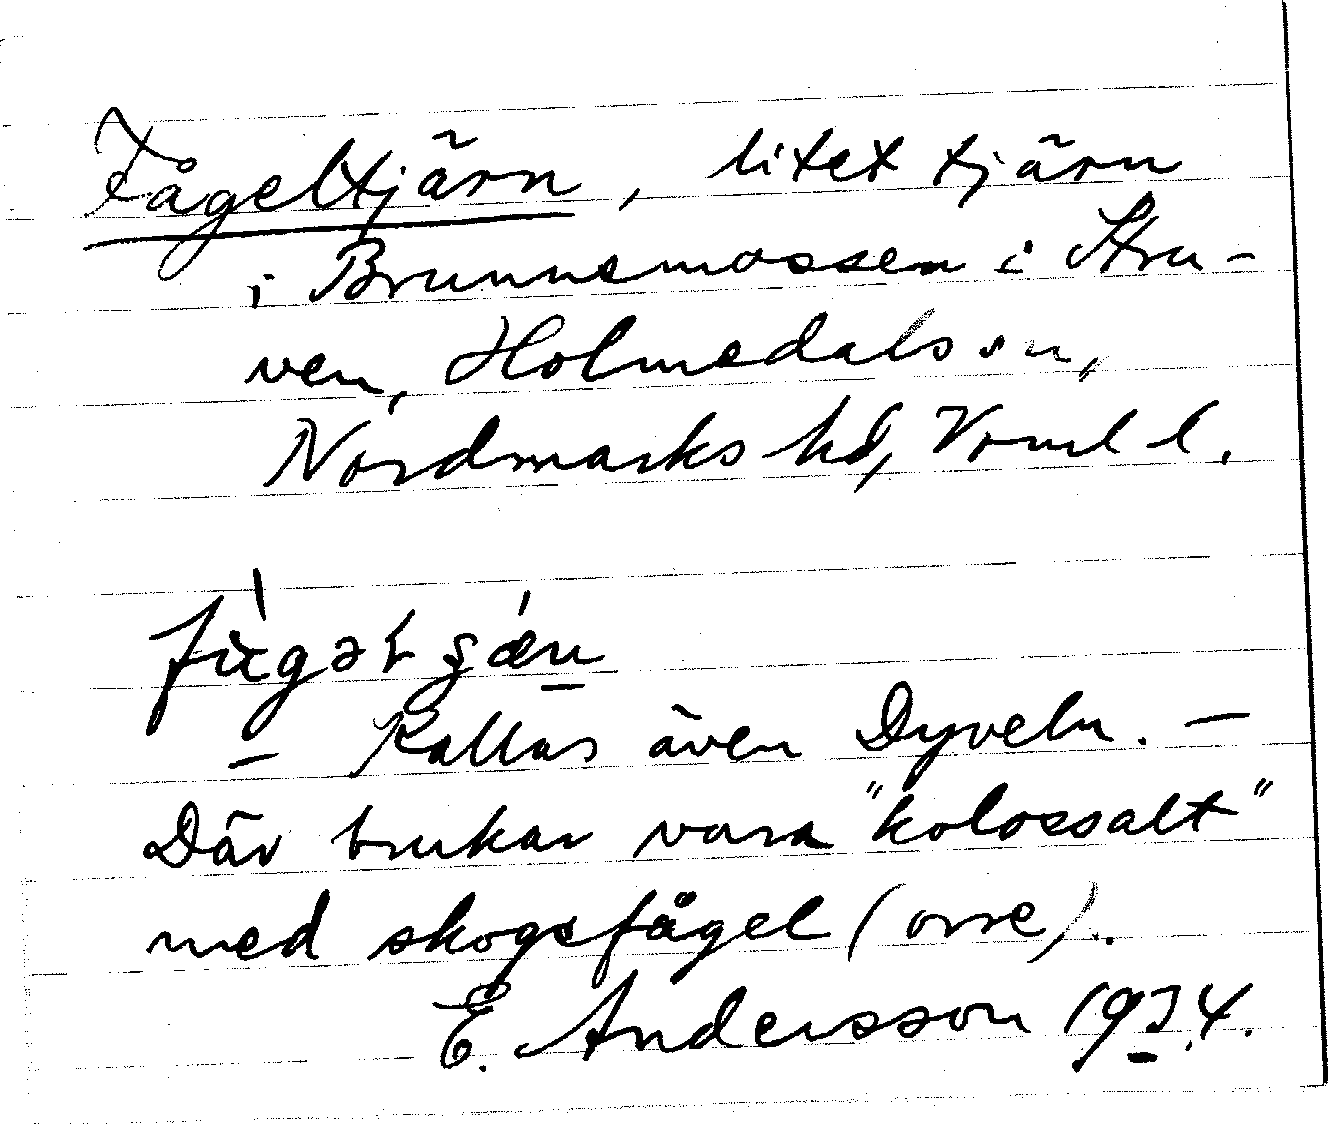 Fågeltjärn, litet tjärn
i Brunnemossen i Stru-
ven, Holmedals sn,
Nordmarks hd, Vrml l.
Kallas även Dyveln. —
Där brukar vara "kolossalt"
med skogsfågel (orre).
E. Andersson 1934.